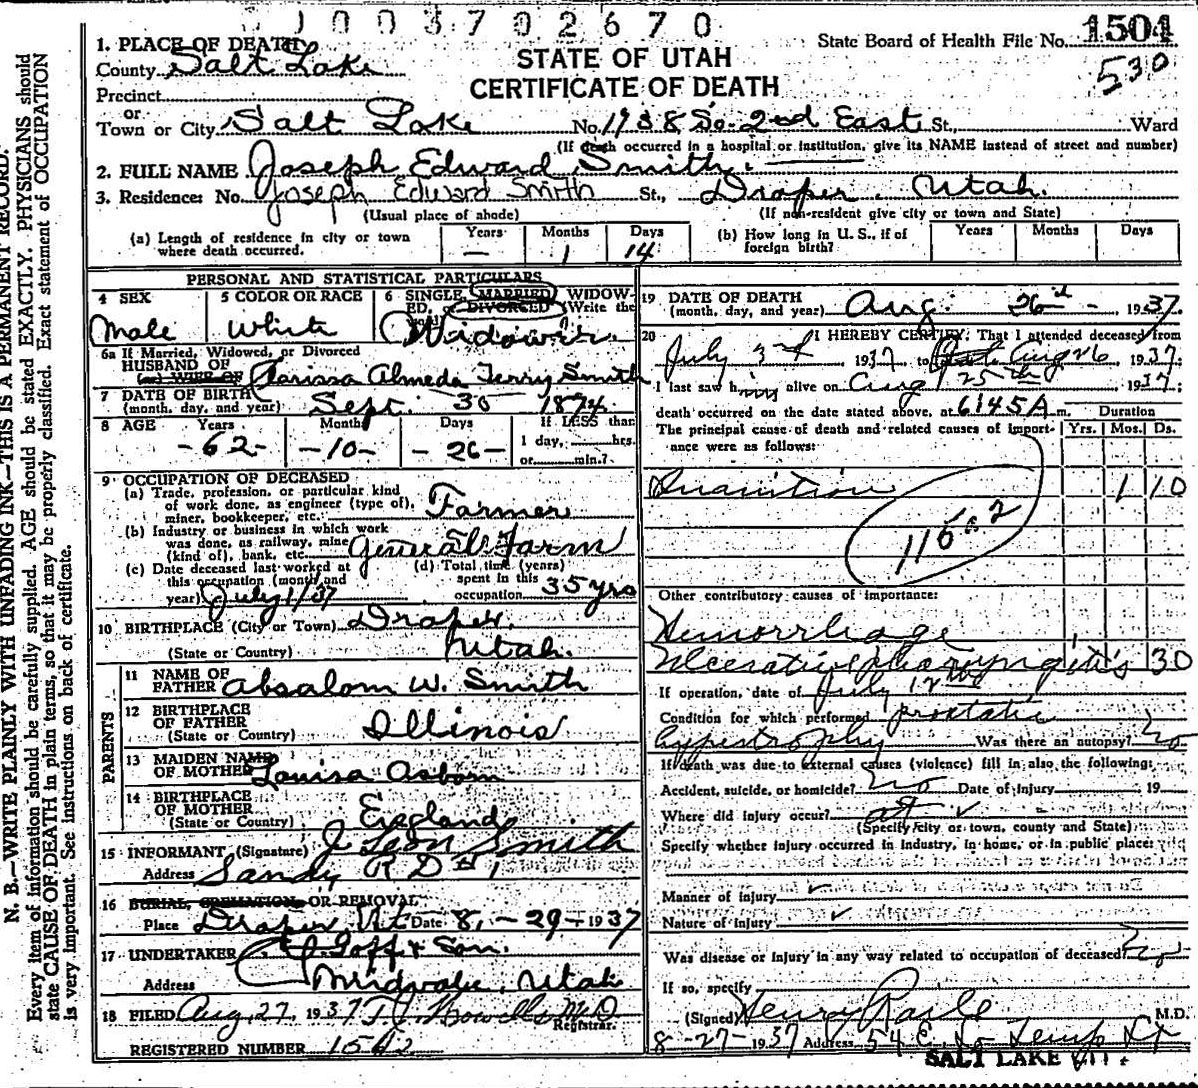 J 0 0 3 7 0 2 6 7 0
1504
530
State Board of Health File No.
STATE OF UTAH
CERTIFICATE OF DEATH
1. PLACE OF DEATH
County Salt Lake
Precinct
or
Town or City Salt Lake No. 1938 So. 2nd East St., Ward
(If death occurred in a hospital or institution, give its NAME instead of street and number)
2. FULL NAME Joseph Edward Smith.
3. Residence: No. Joseph Edward Smith St., Draper, Utah.
(Usual place of abode) (If non-resident give city or town and State)
(a) Length of residence in city or town where death occurred. Years — Months 1 Days 14
(b) How long in U. S., if of foreign birth? Years Months Days
PERSONAL AND STATISTICAL PARTICULARS
4 SEX Male
5 COLOR OR RACE White
6 SINGLE, MARRIED, WIDOWED, DIVORCED (Write the word) Widower.
6a If Married, Widowed, or Divorced
HUSBAND OF
(or) WIFE OF Clarissa Almeda Terry Smith
7 DATE OF BIRTH
(month, day, and year) Sept. 30 1874.
8 AGE Years -62- Months -10- Days -26- If LESS than
1 day, hrs.
or min.?
9 OCCUPATION OF DECEASED
(a) Trade, profession, or particular kind
of work done, as engineer (type of),
miner, bookkeeper, etc. Farmer
(b) Industry or business in which work
was done, as railway, mine
(kind of), bank, etc. General Farm
(c) Date deceased last worked at
this occupation (month and
year) July 1/37
(d) Total time (years)
spent in this
occupation 35 yrs
10 BIRTHPLACE (City or Town) Draper.
(State or Country) Utah.
PARENTS
11 NAME OF
FATHER Absalom W. Smith
12 BIRTHPLACE
OF FATHER
(State or Country) Illinois
13 MAIDEN NAME
OF MOTHER Louisa Asborn
14 BIRTHPLACE
OF MOTHER
(State or Country) England
15 INFORMANT (Signature) J. Leon Smith
Address Sandy R D # 1
16 BURIAL, CREMATION, OR REMOVAL
Place Draper, Ut. Date 8, - 29 - 1937
17 UNDERTAKER Goff & Son.
Address Midvale, Utah
18 FILED Aug 27, 1937 M D
Registrar.
REGISTERED NUMBER 1542
19 DATE OF DEATH
(month, day, and year) Aug. 26 - 1937.
20 I HEREBY CERTIFY, That I attended deceased from
July 3rd 1937 to Aug 26 1937.
I last saw him alive on Aug 25th 1937
death occurred on the date stated above, at 6:45 A m. Duration
The principal cause of death and related causes of importance were as follows: Yrs. Mos. Ds.
Inanition 1 10
Other contributory causes of importance:
Hemorrhage
Ulcerative pharyngitis 30
If operation, date of July 12
Condition for which performed prostatic
hypertrophy Was there an autopsy? No
If death was due to external causes (violence) fill in also the following:
Accident, suicide, or homicide? no Date of injury 19
Where did injury occur?
(Specify city or town, county and State)
Specify whether injury occurred in industry, in home, or in public place:
Manner of injury
Nature of injury
Was disease or injury in any way related to occupation of deceased? No
If so, specify
(Signed) Henry Raile M.D.
8-27-1937 Address 54 E. So Temp St
SALT LAKE CITY.
N. B.—WRITE PLAINLY WITH UNFADING INK—THIS IS A PERMANENT RECORD.
Every item of information should be carefully supplied. AGE should be stated EXACTLY. PHYSICIANS should
state CAUSE OF DEATH in plain terms, so that it may be properly classified. Exact statement of OCCUPATION
is very important. See instructions on back of certificate.